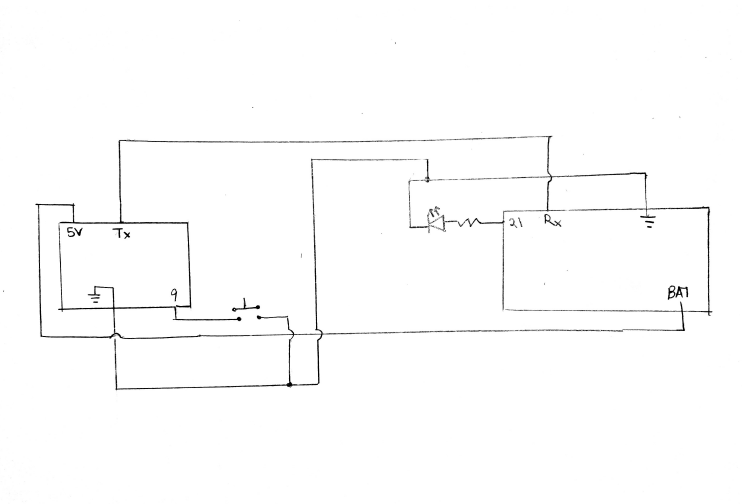 5V Tx
9
21 Rx
BAT